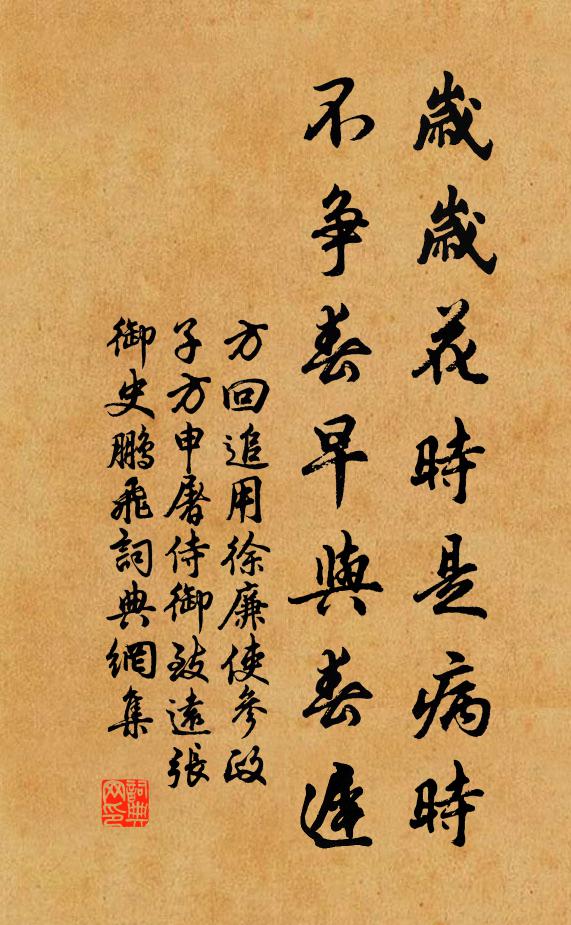 歲歲花時是病時
不爭春早與春遲
方回追用徐廉使參政
子方申屠侍御致遠張
御史鵬飛詞典網集
詞典网印